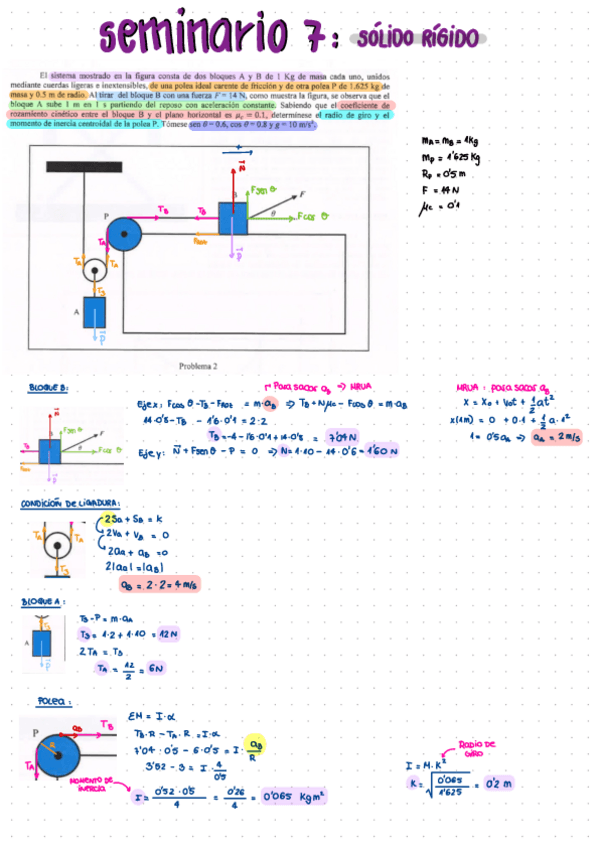 seminario 7: SÓLIDO RÍGIDO
El sistema mostrado en la figura consta de dos bloques A y B de 1 Kg de masa cada uno, unidos
mediante cuerdas ligeras e inextensibles, de una polea ideal carente de fricción y de otra polea P de 1,625 kg de
masa y 0.5 m de radio. Al tirar del bloque B con una fuerza F = 14 N, como muestra la figura, se observa que el
bloque A sube 1 m en 1 s partiendo del reposo con aceleración constante. Sabiendo que el coeficiente de
rozamiento cinético entre el bloque B y el plano horizontal es μc = 0.1, determínese el radio de giro y el
momento de inercia centroidal de la polea P. Tómese sen θ = 0.6, cos θ = 0.8 y g = 10 m/s².
mA = mB = 1Kg
MP = 1'625 Kg
RP = 0'5 m
F = 14 N
μc = 0'1
+
N
Fsen θ
F
θ
Fcos θ
P
TB
TB
FROZ
P
TA
TA
TA
T3
A
P
Problema 2
BLOQUE B:
Para sacar aB => MRUA
MRUA: para sacar aB
N
Fsen θ
F
θ
Fcos θ
TB
FROZ
P
Eje x: Fcos θ - TB - FROZ = m·aB => TB + Nμc - Fcos θ = m·aB
14·0'8 - TB - 1'6·0'1 = 2·2
TB = -4 - 1'6·0'1 + 14·0'8 = 7'04 N
Eje y: N + Fsen θ - P = 0 => N = 1·10 - 14·0'6 = 1'60 N
x = x0 + v0t + 1/2 at²
x(1m) = 0 + 0·1 + 1/2 a·1²
1 = 0'5aA => aA = 2 m/s
CONDICIÓN DE LIGADURA:
TA
TA
T3
2Sa + SB = K
2Va + VB = 0
2aa + aB = 0
2|aa| = |aB|
aB = 2·2 = 4 m/s
BLOQUE A:
T3
A
P
T3 - P = m·aA
T3 = 1·2 + 1·10 = 12 N
2TA = T3
TA = 12/2 = 6N
POLEA:
P
aB
TB
R
TA
ΣM = I·α
TB·R - TA·R = I·α
7'04·0'5 - 6·0'5 = I·aB/R
3'52 - 3 = I·4/0'5
MOMENTO DE INERCIA
I = 0'52·0'5/4 = 0'26/4 = 0'065 Kgm²
RADIO DE GIRO
I = M·K²
K = √0'065/1'625 = 0'2 m